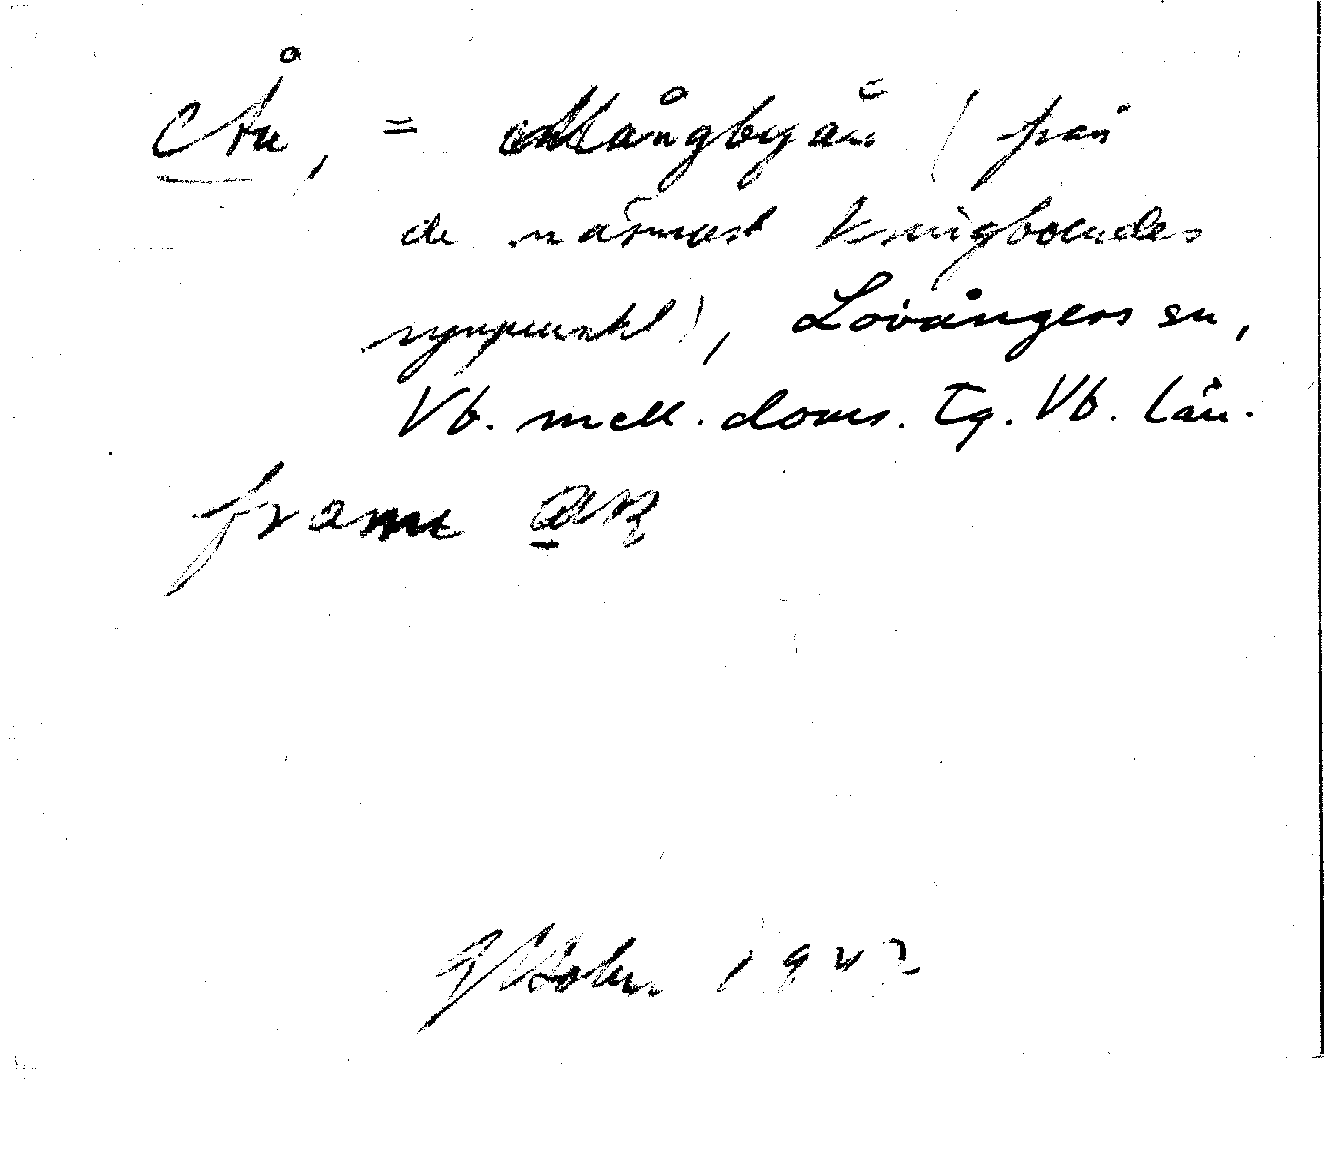 Ån, = Mångbyån (från
de närmast kringboendes
synpunkt), Lövångers sn,
Vb. mell. doms. tg. Vb. län.
framme
1942